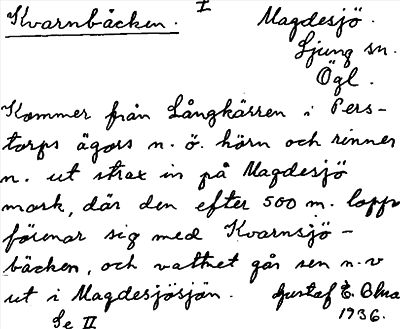 I
Kvarnbäcken. Magdesjö.
Ljung sn.
Ögl.
Kommer från Långkärren i Pers-
torps ägors n. ö. hörn och rinner
n. ut strax in på Magdesjö
mark, där den efter 500 m. lopp
förenar sig med Kvarnsjö-
bäcken, och vattnet går sen n.v
ut i Magdesjösjön. Gustaf E.
Se II 1936.